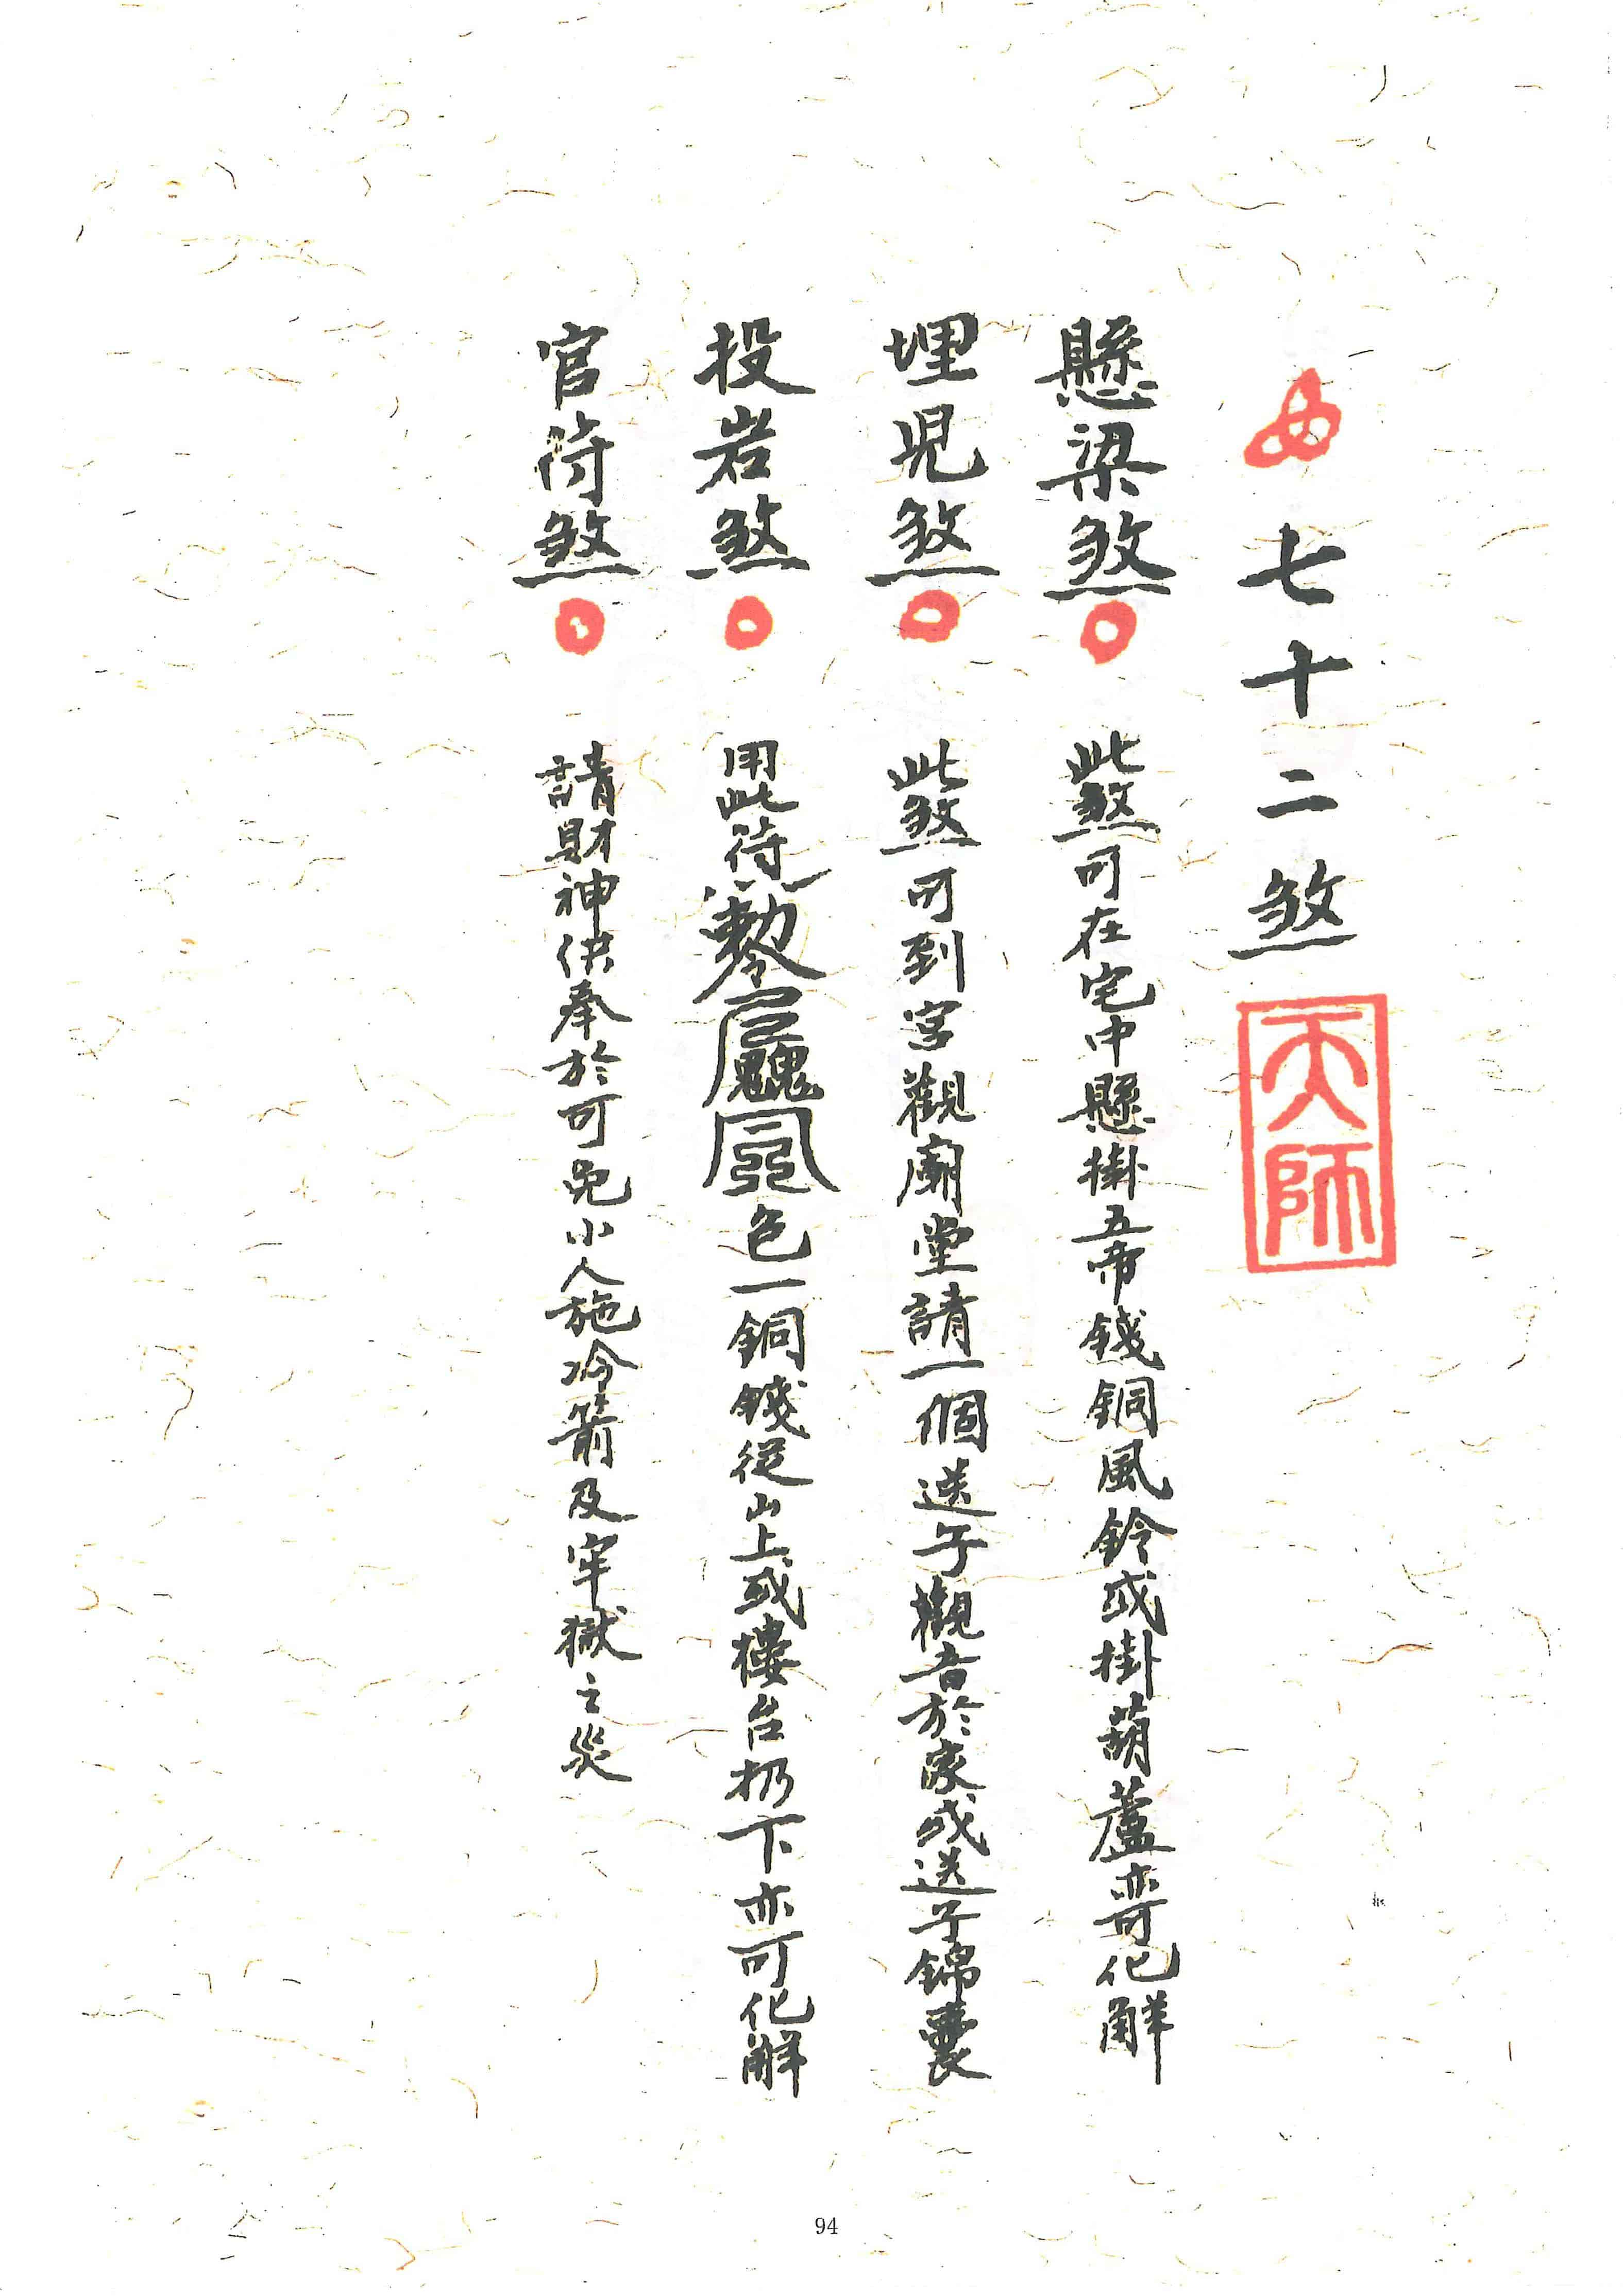 七十二煞
天師
懸梁煞 此煞可在宅中懸掛五帝錢銅風鈴或掛葫蘆亦可化解
埋児煞 此煞可到宮觀廟堂請一個送子觀音於家或送子錦囊
投岩煞 用此符 敕 包一銅錢從山上或樓台扔下亦可化解
官符煞 請財神供奉於可免小人施冷箭及牢獄之災
94